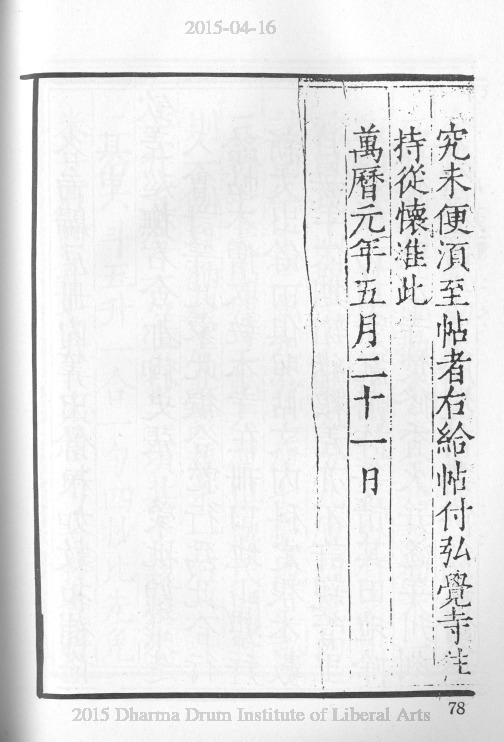 2015-04-16
究未便湏至帖者右給帖付弘覺寺住
持從懷准此
萬曆元年五月二十一日
78
2015 Dharma Drum Institute of Liberal Arts